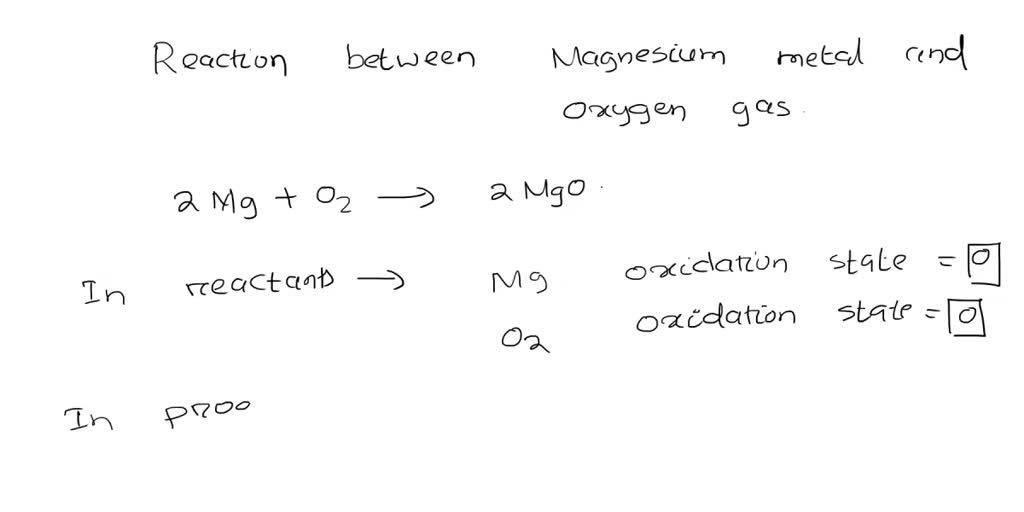 Reaction between Magnesium metal and
oxygen gas.
2 Mg + O2 → 2 MgO.
In reactants → Mg oxidation state = 0
O2 oxidation state = 0
In proo